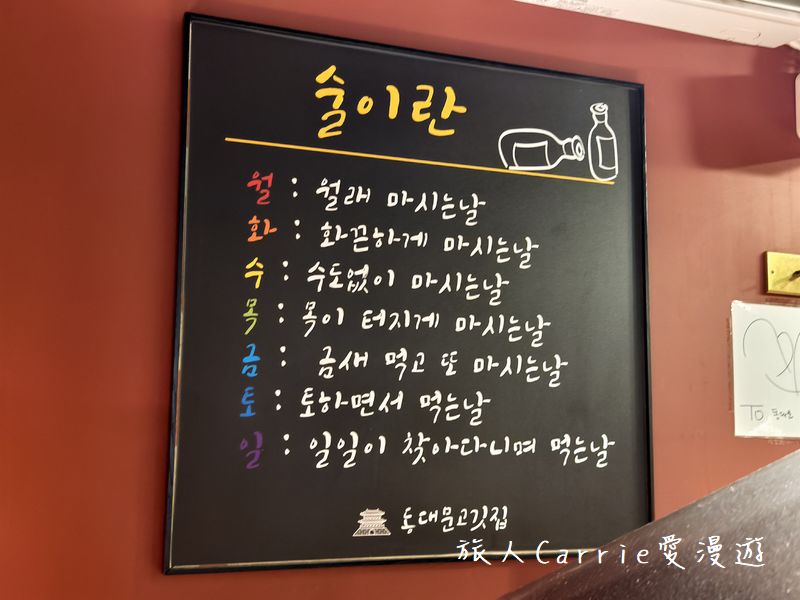 술이란
월 : 월래 마시는날
화 : 화끈하게 마시는날
수 : 수도없이 마시는날
목 : 목이 터지게 마시는날
금 : 금새 먹고 또 마시는날
토 : 토하면서 먹는날
일 : 일일이 찾아다니며 먹는날
동대문고깃집
To.
旅人Carrie愛漫遊